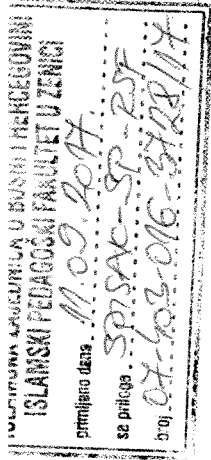 ISLAMSKA ZAJEDNICA U BOSNI I HERCEGOVINI
ISLAMSKI PEDAGOŠKI FAKULTET U ZENICI
primljeno dana 11.09.2017.
sa priloga SPISAK-SP-RSF
broj 07-402-016-3728/17